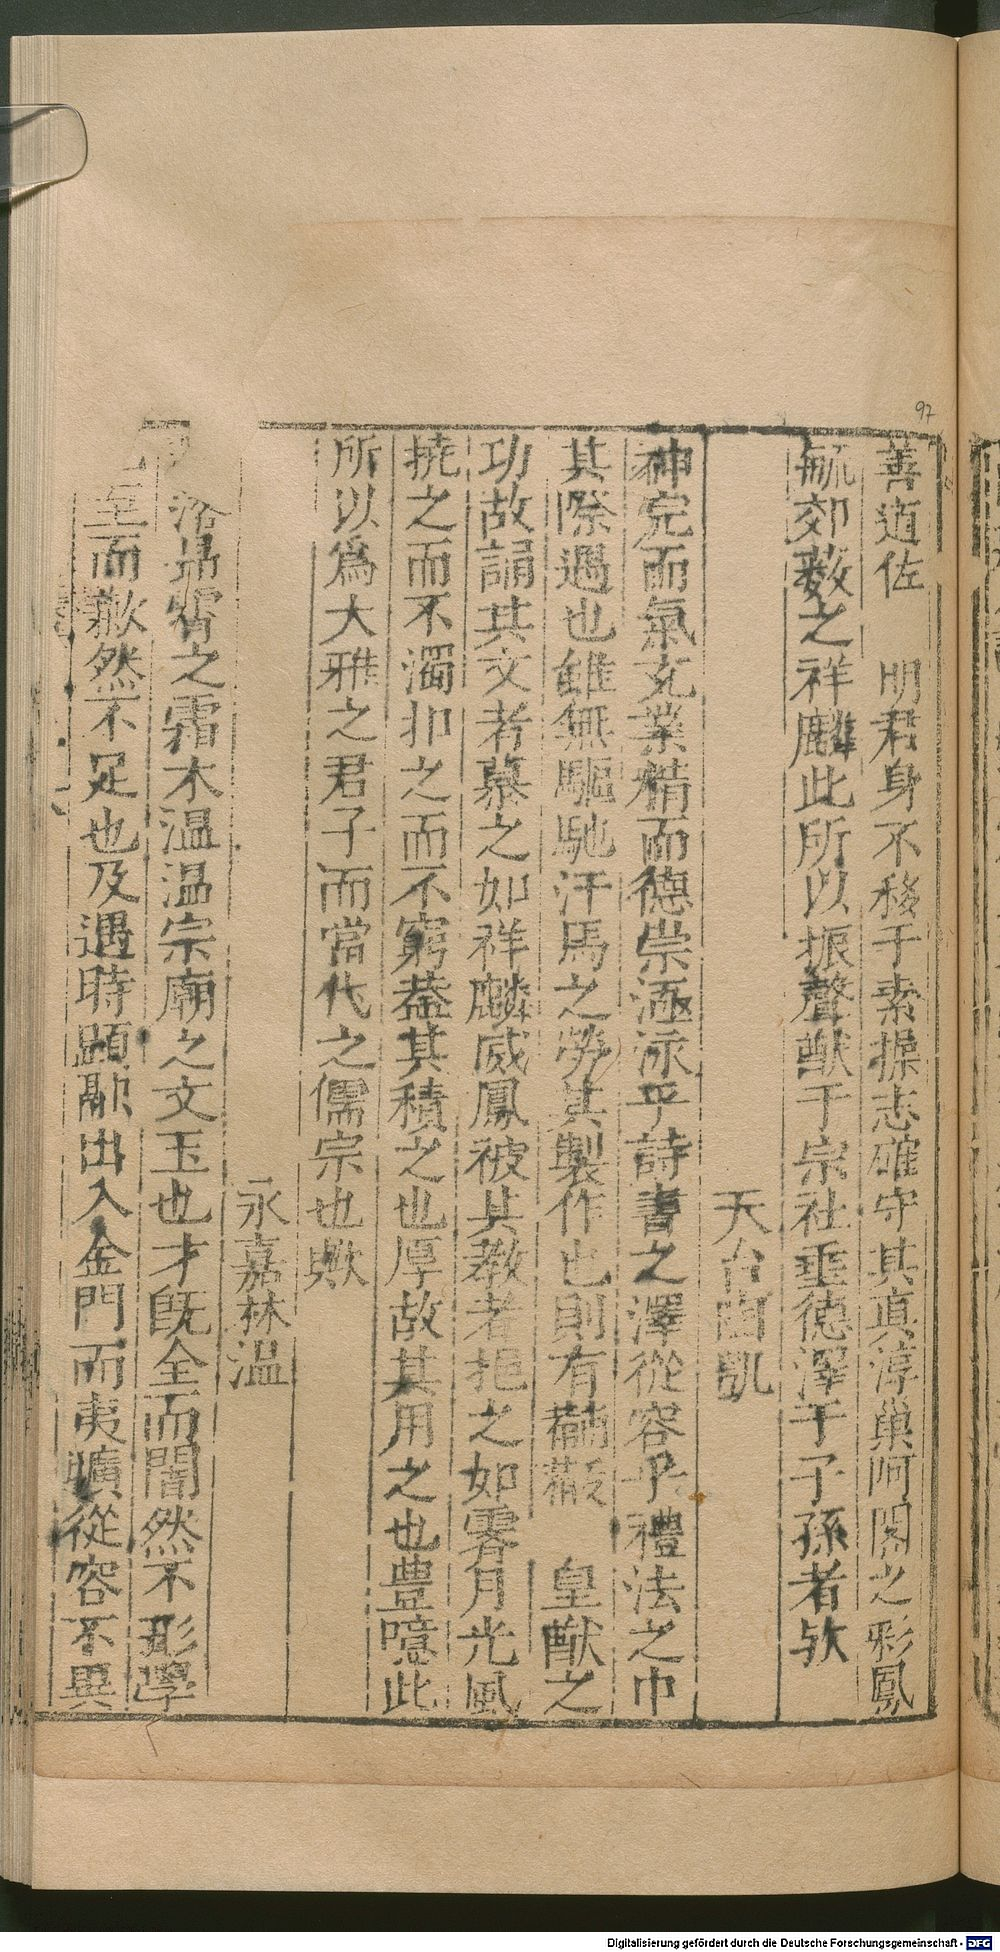 97
善道佐 明君身不移于素操志確守其真淳巢阿閣之彩鳳
毓郊薮之祥麟此所以振聲猷于宗社垂德澤于子孫者欤
天台凾凱
神完而氣充業精而德崇涵泳乎詩書之澤從容乎禮法之中
其際遇也雖無驅馳汗馬之勞其製作也則有黼黻 皇猷之
功故誦其文者慕之如祥麟威鳳被其教者挹之如霽月光風
撓之而不濁抑之而不窮蓋其積之也厚故其用之也豊噫此
所以爲大雅之君子而當代之儒宗也歟
永嘉林温
之霜木温温宗廟之文玉也才旣全而闇然不形學
至而歉然不足也及遇時顯融出入金門而夷曠從容不異
Digitalisierung gefördert durch die Deutsche Forschungsgemeinschaft - DFG